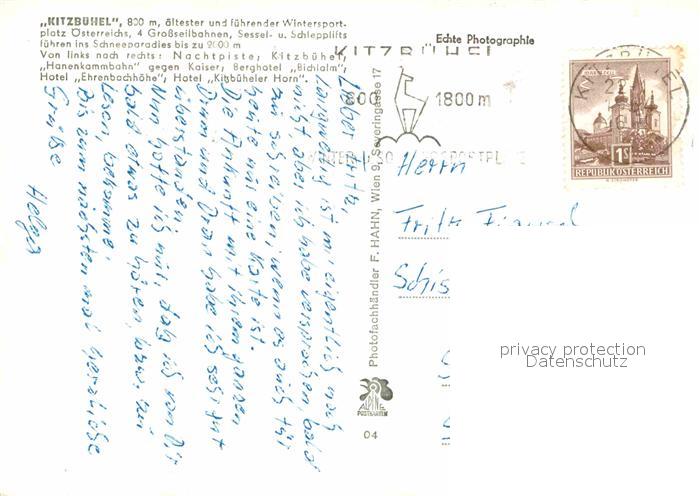 „KITZBÜHEL", 800 m, ältester und führender Wintersport-
platz Österreichs, 4 Großseilbahnen, Sessel- u. Schlepplifts
führen ins Schneeparadies bis zu 2000 m
Von links nach rechts: Nachtpiste, Kitzbühel,
„Hanenkammbahn" gegen Kaiser; Berghotel „Bichlalm";
Hotel „Ehrenbachhöhe"; Hotel „Kitzbüheler Horn".
Echte Photographie
KITZBÜHEL
800 - 1800 m
KITZBÜHEL
1S
REPUBLIK ÖSTERREICH
Lieber Fritz,
Langweilig ist mir eigentlich noch
nicht, aber ich habe versprochen, bald
zu schreiben, wenn es auch für
heute nur eine Karte ist.
Die Ankunft mit ihrem ganzen
Drum und Dran habe ich sehr gut
überstanden.
Nun hoffe ich nur, daß ich von Dir
bald etwas zu hören, bzw. zu
lesen bekomme.
Bis zum nächsten mal herzliche
Grüße
Helga
Photofachhändler F. HAHN, Wien 9, Severingasse 17
ALPINE
POSTKARTEN
04
Herrn
Fritz
Schis
privacy protection
Datenschutz